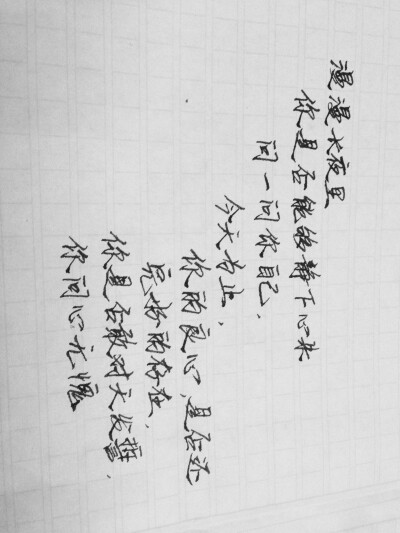 漫漫长夜里
你是否能够静下心来
问一问你自己，
今天为止，
你的良心，是否还
完好的存在，
你是否敢对天发誓，
你问心无愧